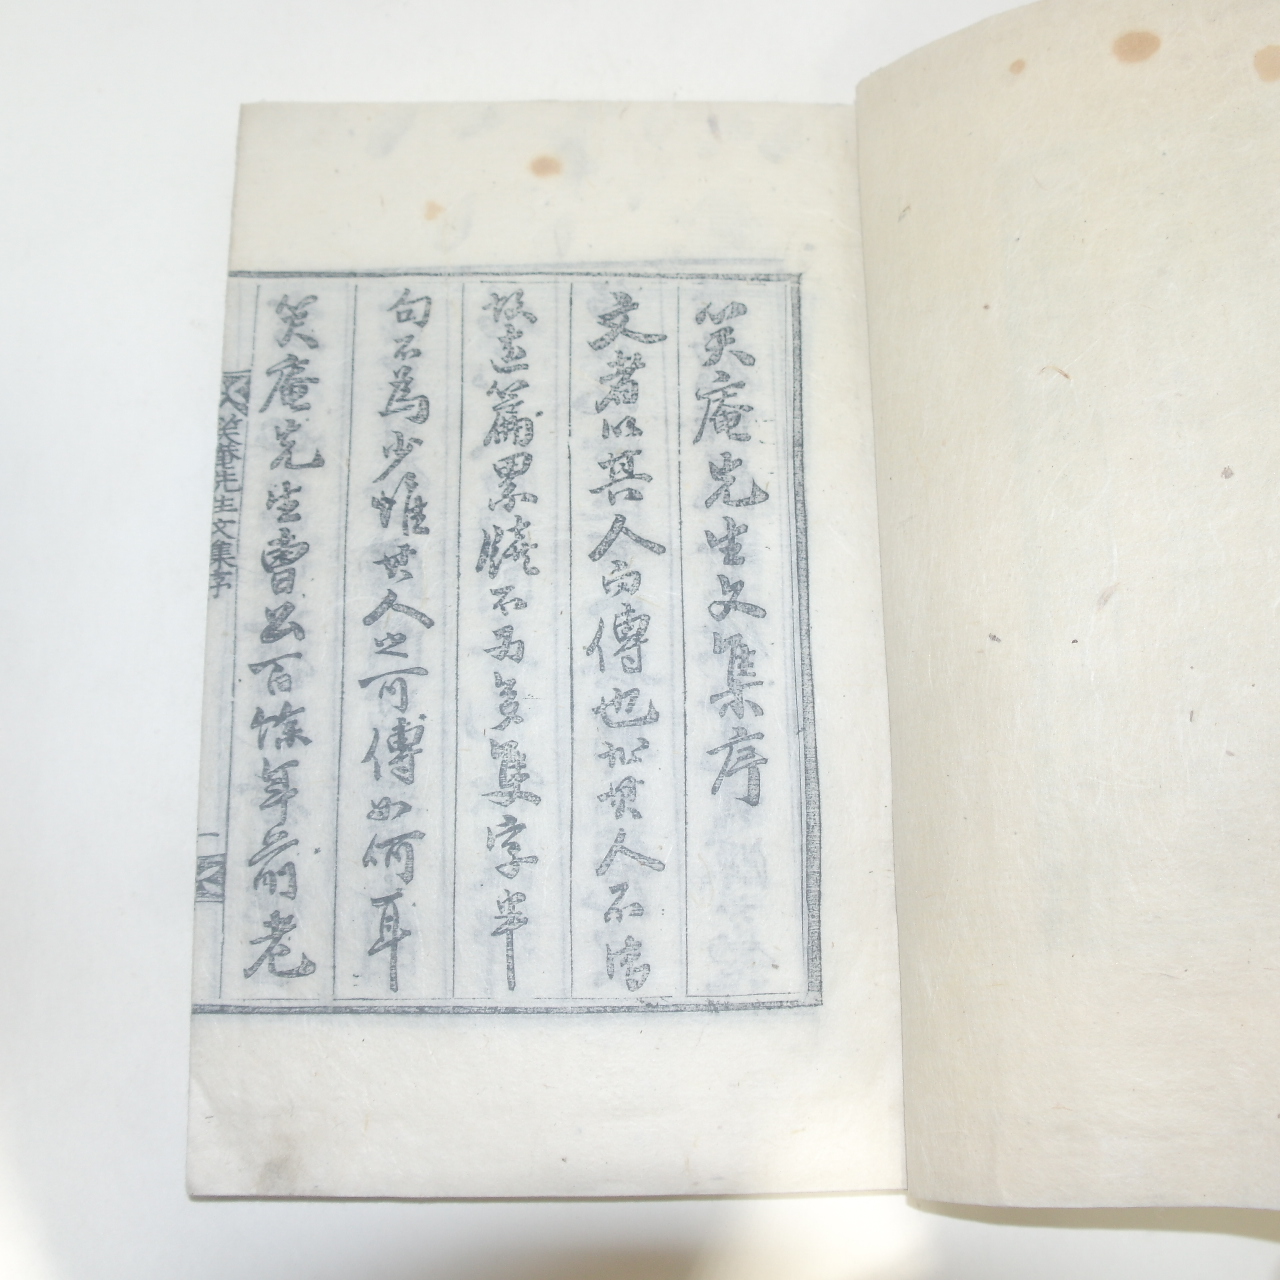 笑庵先生文集序
文者以其人而傳也非其人不傳
故連篇累牘不爲多隻字半
句不為少惟其人之可傳如何耳
笑庵先生曺公百餘年前老
笑庵先生文集序 一